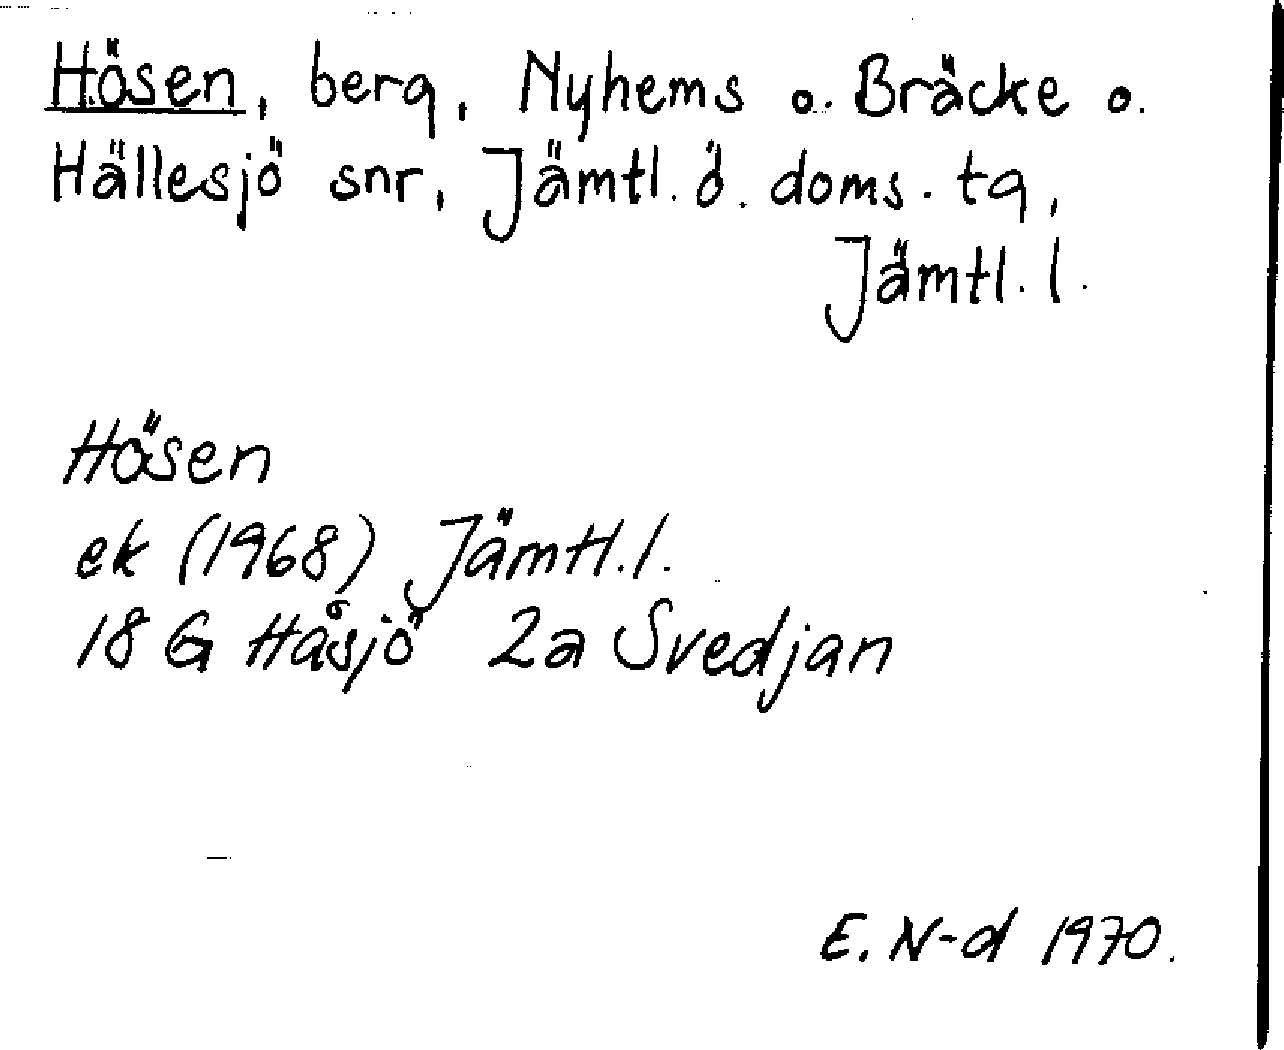 Hösen, berg, Nyhems o. Bräcke o.
Hällesjö snr, Jämtl. ö. doms. tg,
Jämtl. l.
Hösen
ek (1968) Jämtl. l.
18 G Håsjö 2a Svedjan
E. N-d 1970.